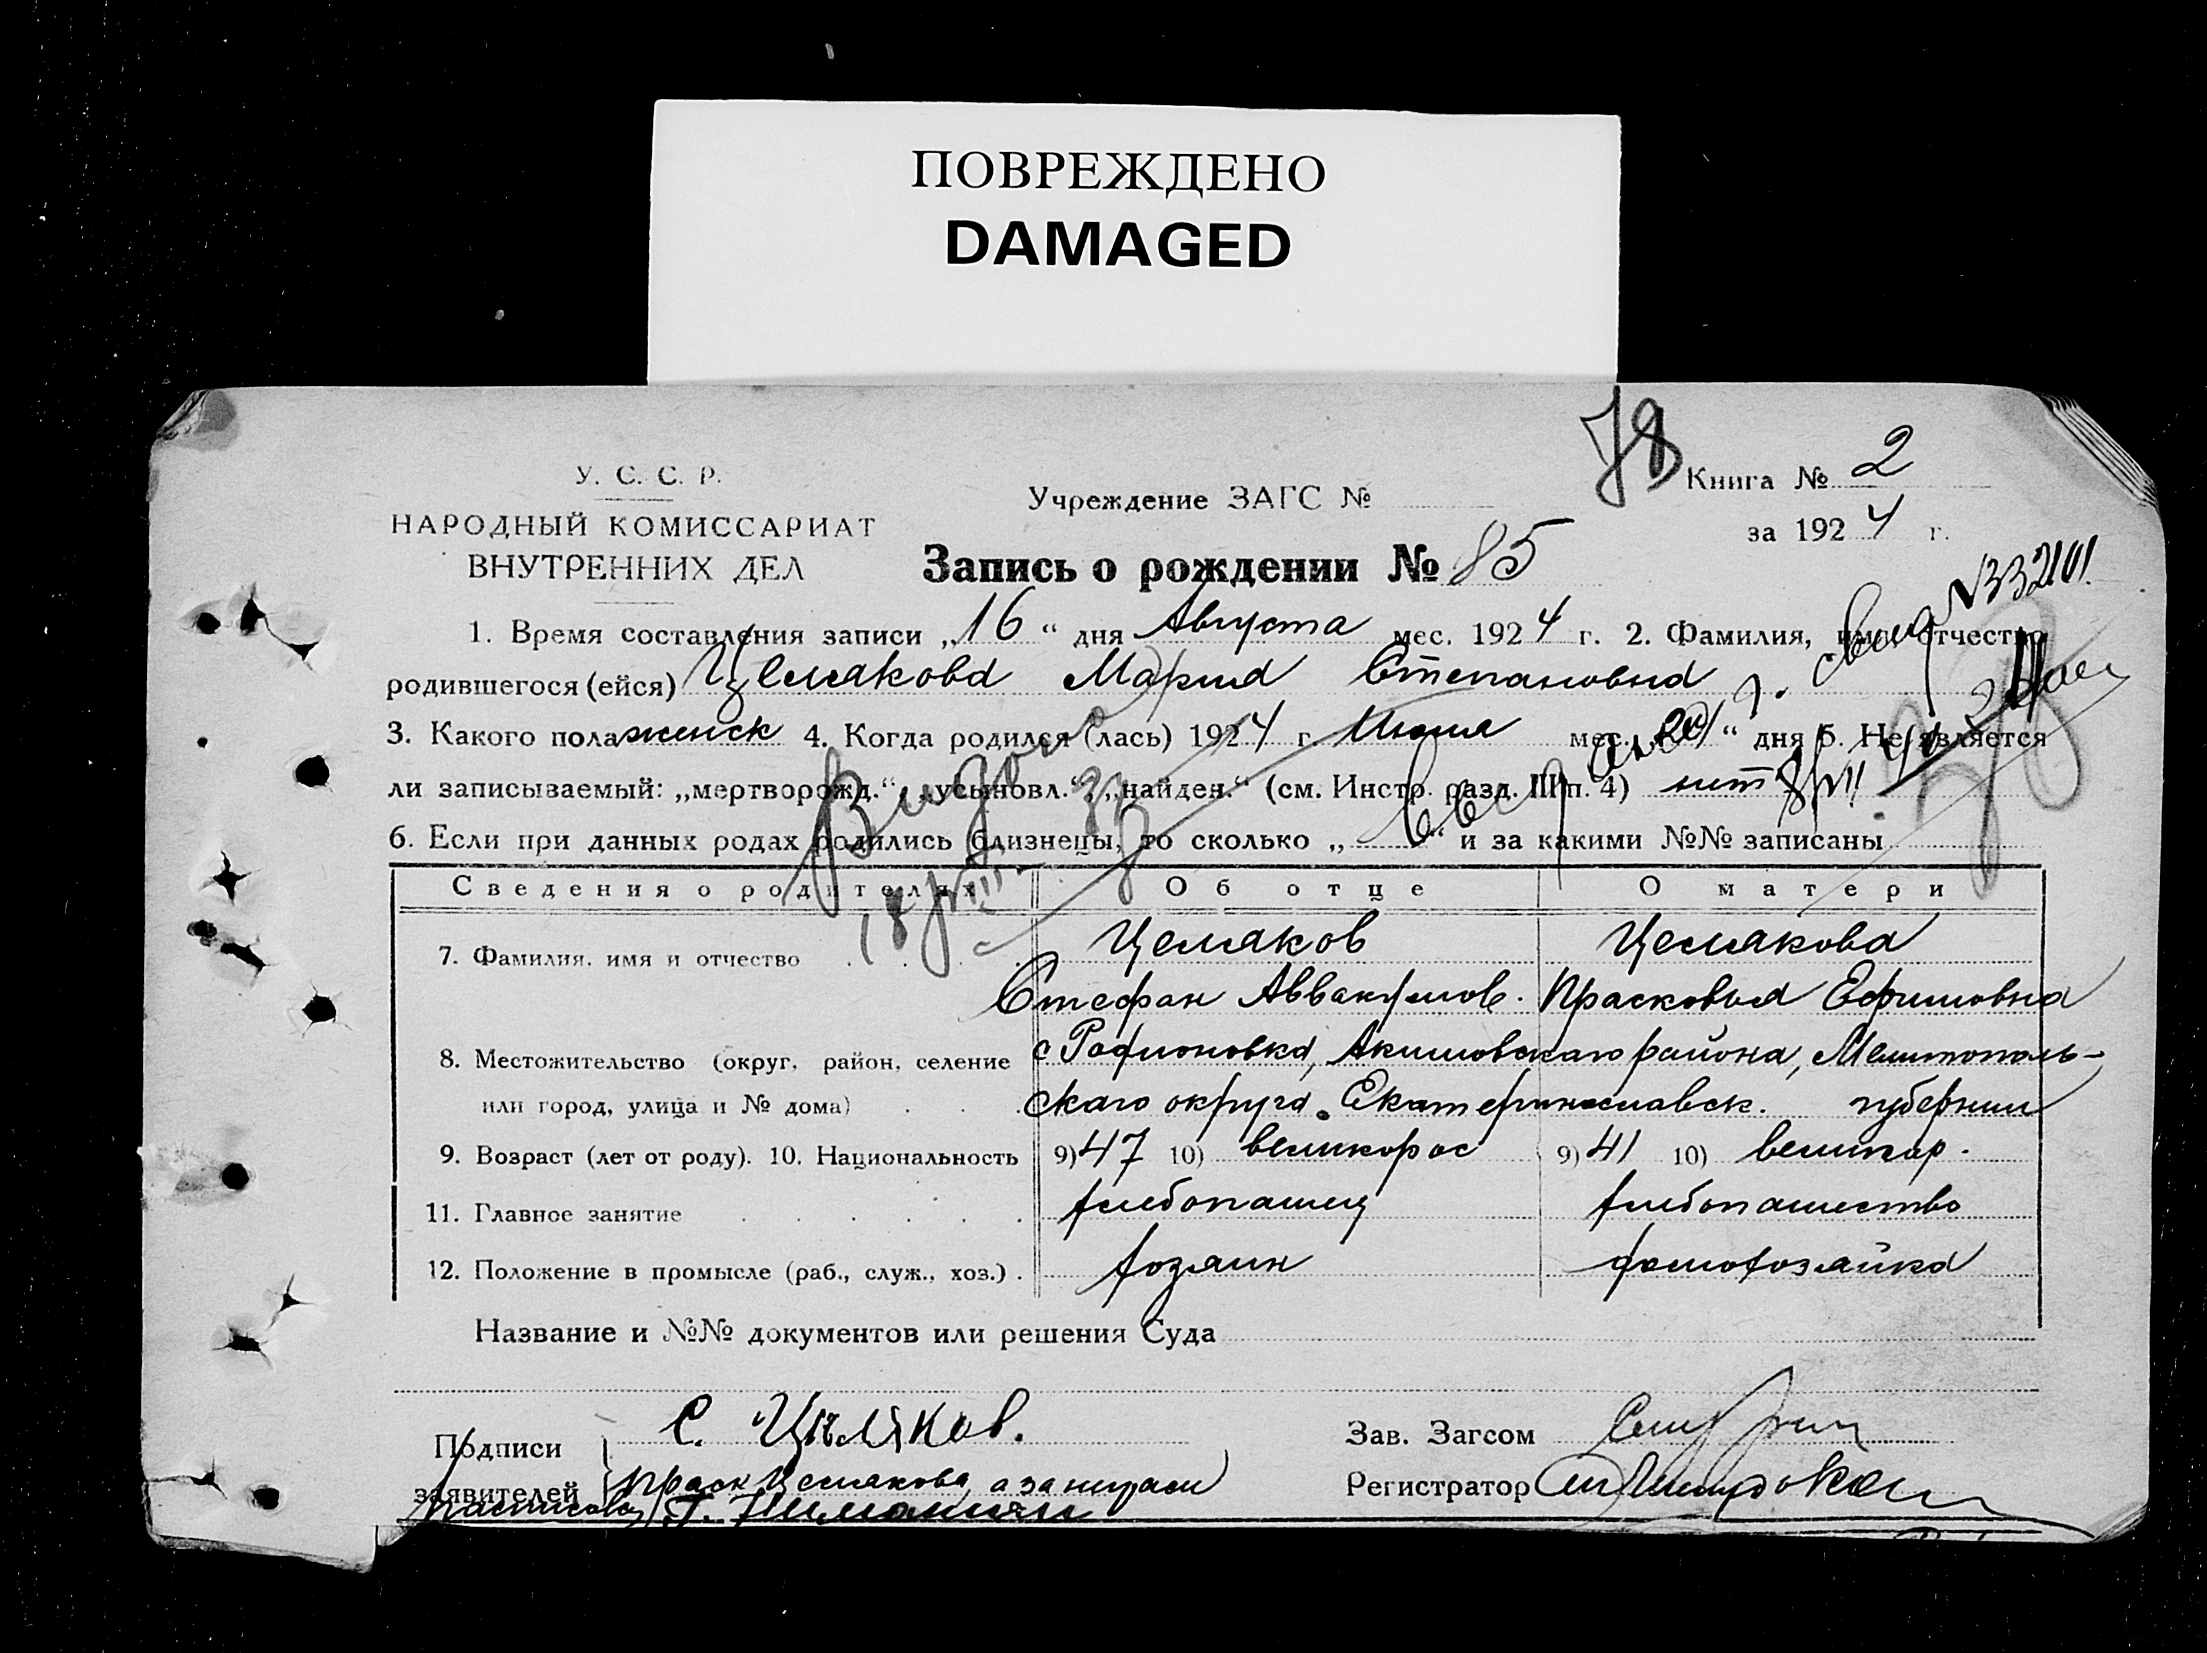 ПОВРЕЖДЕНО
DAMAGED
78
У. С. С. Р.
НАРОДНЫЙ КОМИССАРИАТ
ВНУТРЕННИХ ДЕЛ
Учреждение ЗАГС №
Книга № 2
за 1924 г.
Запись о рождении № 85
№332101
1. Время составления записи „16“ дня Августа мес. 1924 г. 2. Фамилия, имя, отчество
родившегося (ейся) Целлакова Мария Степановна
3. Какого пола женск 4. Когда родился (лась) 1924 г. мес. дня 5. Не является
ли записываемый: „мертворожд.“, „усыновл.“, „найден.“ (см. Инстр. разд. III п. 4) нет
6. Если при данных родах родились близнецы, то сколько „ “ и за какими №№ записаны
Сведения о родителях Об отце О матери
7. Фамилия, имя и отчество Целлаков Целлакова
Стефан Аввакумов. Прасковья Ефимовна
8. Местожительство (округ, район, селение с Родионовка, Акимовскаго района, Мелитополь-
или город, улица и № дома) скаго округа. Екатеринославск. губернии
9. Возраст (лет от роду). 10. Национальность 9) 47 10) великорос 9) 41 10) великор.
11. Главное занятие хлебопашец хлебопашество
12. Положение в промысле (раб., служ., хоз.) хозяин домохозяйка
Название и №№ документов или решения Суда
Подписи С.
Зав. Загсом
заявителей Праск
Регистратор